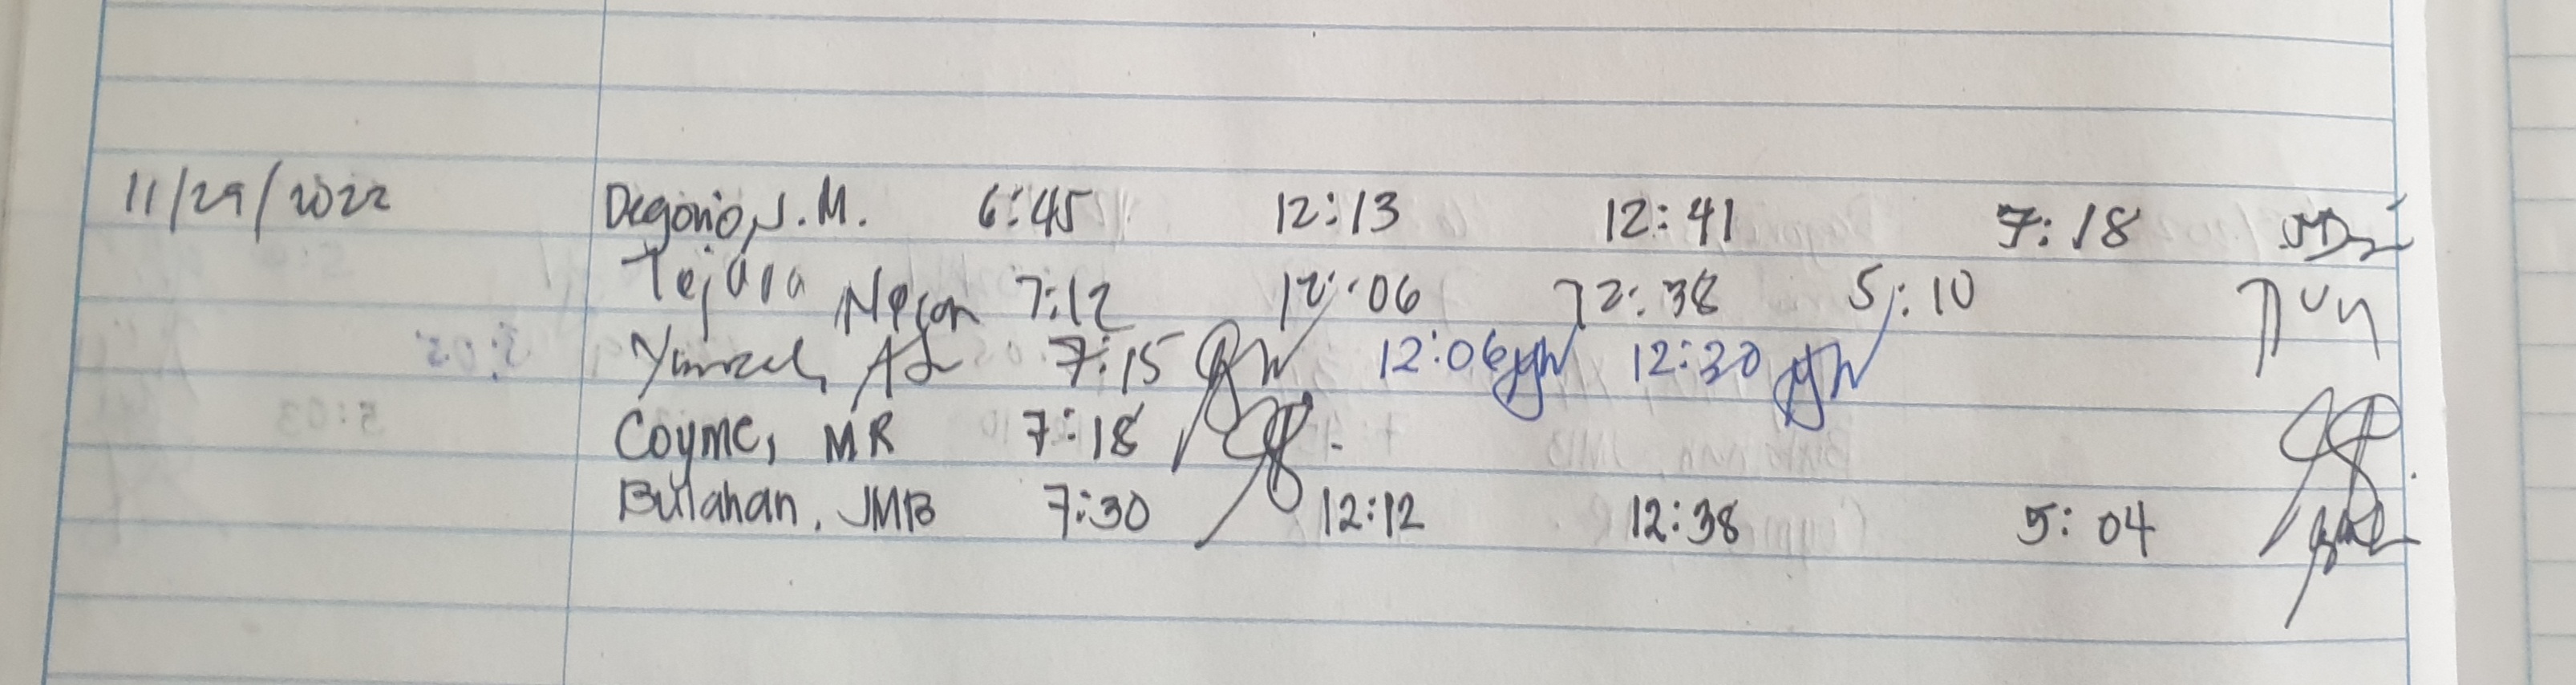 11/29/2022 Degorio, J.M. 6:45 12:13 12:41 7:18
Tejada Nelson 7:12 12:06 12:38 5:10
AL 7:15 12:06 12:30
Coyme, MR 7:18
Bulahan, JMB 7:30 12:12 12:38 5:04